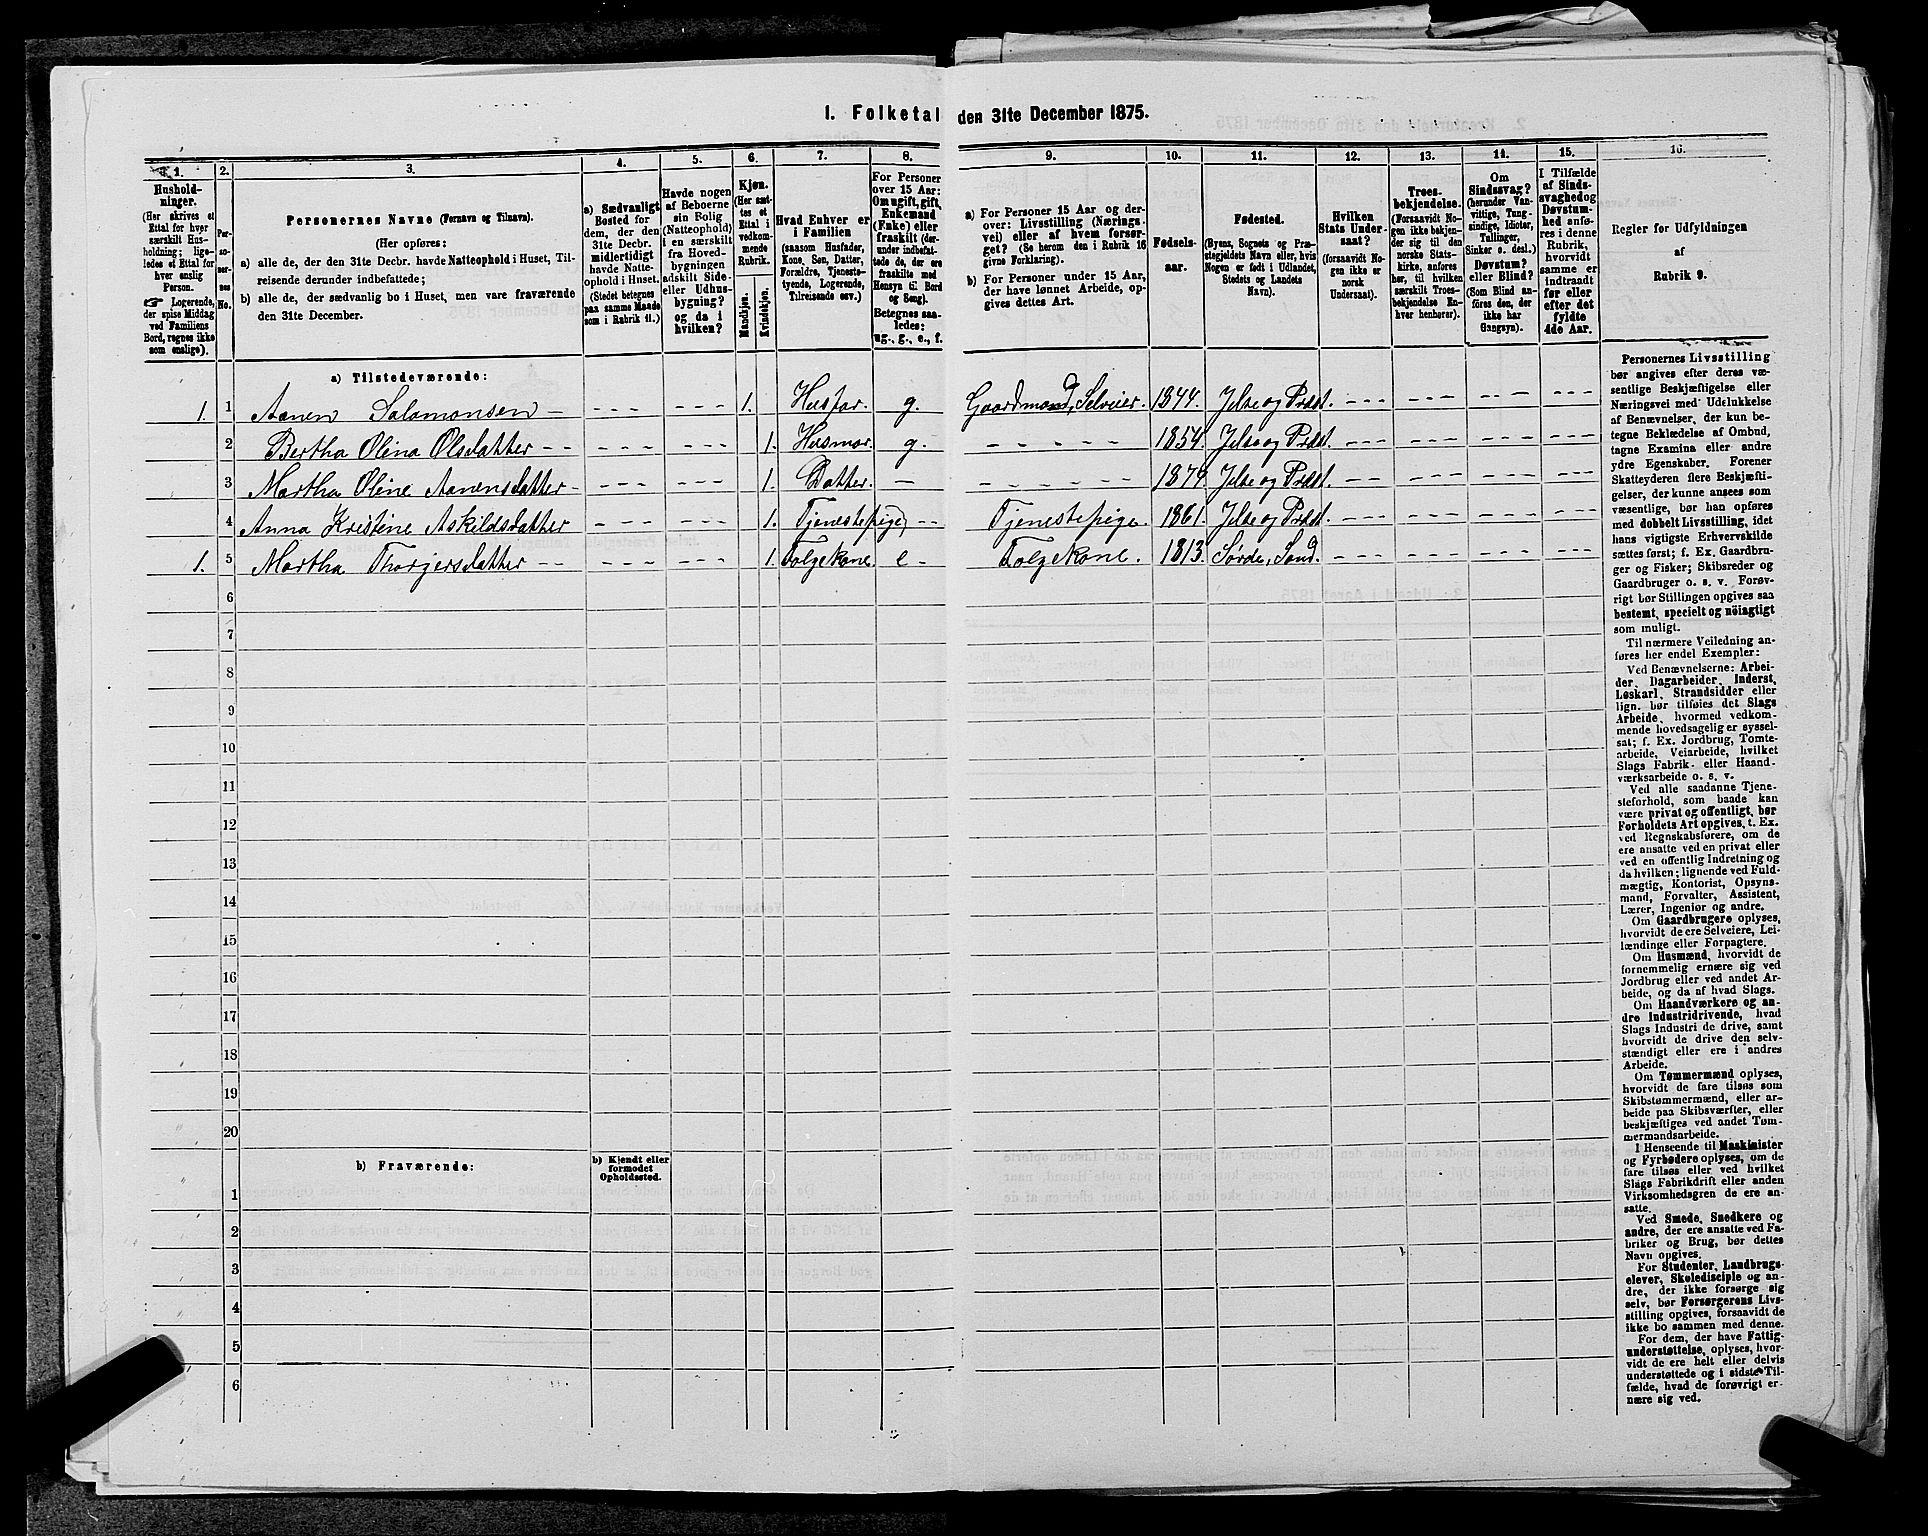 1. Folketal den 31te December 1875.
1. 2. 3. 4. 5. 6. 7. 8. 9. 10. 11. 12. 13. 14. 15. 16.
Hushold-
ninger.
(Her skrives et
Ettal for hver
særskilt Hus-
holdning; lige-
ledes et Ettal for
hver enslig
Person.
☞ Logerende,
der spise Middag
ved Familiens
Bord, regnes ikke
som enslige).
Per-
so-
ner-
nes
No.
Personernes Navne (Fornavn og Tilnavn).
(Her opføres:
a) alle de, der den 31te Decbr. havde Natteophold i Huset, Til-
reisende derunder indbefattede;
b) alle de, der sædvanlig bo i Huset, men vare fraværende
den 31te December.
a) Sædvanligt
Bosted for
dem, der den
31te Decbr.
midlertidigt
havde Natte-
ophold i Huset.
(Stedet betegnes
paa samme Maade
som i Rubrik 11.)
Havde nogen
af Beboerne
sin Bolig
(Natteophold)
i en særskilt
fra Hoved-
bygningen
adskilt Side-
eller Udhus-
bygning?
og da i
hvilken?
Kjøn.
(Her sæt-
tes et
Ettal i
vedkom-
mende
Rubrik.
Mandkjøn.
Kvindekjøn.
Hvad Enhver er
i Familien
(saasom Husfader,
Kone, Søn, Datter,
Forældre, Tjeneste-
tyende, Logerende,
Tilreisende osv.)
For Personer
over 15 Aar:
Om ugift, gift,
Enkemand
(Enke) eller
fraskilt (der-
under indbefat-
tede de, der ere
fraskilte med
Hensyn til Bord
og Seng).
Betegnes saa-
ledes:
ug., g., e., f.
a) For Personer 15 Aar og der-
over: Livsstilling (Nærings-
vei) eller af hvem forsør-
get? (Se herom den i Rubrik 16
givne Forklaring).
b) For Personer under 15 Aar,
der have lønnet Arbeide, op-
gives dettes Art.
Fødsels-
aar.
Fødested.
(Byens, Sognets og Præ-
stegjeldets Navn eller, hvis
Nogen er født i Udlandet,
Stedets og Landets
Navn).
Hvilken
Stats Under-
saat?
(forsaavidt No-
gen ikke er
norsk
Undersaat).
Troes-
bekjendelse.
(Forsaavidt No-
gen ikke bekjen-
der sig til den
norske Stats-
kirke, anføres
her, til hvilken
særskilt Troes-
bekjendelse En-
hver henhører).
Om
Sindssvag?
(herunder Van-
vittige, Tung-
sindige, Idioter,
Tullinger,
Sinker o. desl.)
Døvstum?
eller Blind?
(Som Blind an-
føres den, der
ikke har
Gangsyn).
I Tilfælde
af Sinds-
svaghed og
Døvstum-
hed anfø-
res i denne
Rubrik,
hvorvidt
samme er
indtraadt
før eller
efter det
fyldte
4de Aar.
Regler for Udfyldningen
af
Rubrik 9.
a) Tilstedeværende:
1. 1 Aanen Salamonsen – - - - - - - 1. Husfar. g. Gaardmand, Selveier. 1844. Jelse og Præst. - - - - - - - - - - -
2 Bertha Olina Olsdatter - - - - - - - - 1. Husmor. g. - - - - - 1854. Jelse og Præst. - - - - - - - - - - -
3 Martha Oline Aanensdatter - - - - - - - 1. Datter. – - - - - - - 1874. Jelse og Præst. - - - - - - - - - - -
4 Anna Kristine Askildsdatter - - - - - - - 1. Tjenestepige - - Tjenestepige. 1861. Jelse og Præst. - - - - - - - - - - -
1. 5 Martha Thorgersdatter - - - - - - - - 1. Folgekone. e - Folgekone. 1813. Sørde, Sand. - - - - - - - - - - -
6
7
8
9
10
11
12
13
14
15
16
17
18
19
20
b) Fraværende:
b) Kjendt eller
formodet
Opholdssted.
1
2
3
4
5
6
Personernes Livsstilling
bør angives efter deres væ-
sentlige Beskjæftigelse eller
Næringsvei med Udelukkelse
af Benævnelser, der kun be-
tegne Beklædelse af Ombud,
tagne Examina eller andre
ydre Egenskaber. Forener
Skatteyderen flere Beskjæfti-
gelser, der kunne ansees som
væsentlige, bør han opføres
med dobbelt Livsstilling, idet
hans vigtigste Erhvervskilde
sættes først; f. Ex. Gaardbru-
ger og Fisker; Skibsreder og
Gaardbruger o. s. v. Forøv-
rigt bør Stillingen opgives saa
bestemt, specielt og nöiagtigt
som muligt.
Til nærmere Veiledning an-
føres her endel Exempler:
Ved Benævnelserne: Arbei-
der, Dagarbeider, Inderst,
Løskarl, Strandsidder eller
lign. bør tilføies det Slags
Arbeide, hvormed vedkom-
mende hovedsagelig er syssel-
sat; f. Ex. Jordbrug, Tomte-
arbeide, Veiarbeide, hvilket
Slags Fabrik- eller Haand-
værksarbeide o. s. v.
Ved alle saadanne Tjene-
steforhold, som baade kan
være privat og offentligt, bør
Forholdets Art opgives, t. Ex.
ved Regnskabsførere, om de
ere ansatte ved en privat eller
ved en offentlig Indretning og
da hvilken; lignende ved Fuld-
mægtig, Kontorist, Opsyns-
mand, Forvalter, Assistent,
Lærer, Ingeniør og andre.
Om Gaardbrugere oplyses,
hvorvidt de ere Selveiere, Lei-
lændinge eller Forpagtere.
Om Husmænd, hvorvidt de
fornemmelig ernære sig ved
Jordbrug eller ved andet Ar-
beide, og da af hvad Slags.
Om Haandværkere og an-
dre Industridrivende, hvad
Slags Industri de drive, samt
hvorvidt de drive den selv-
stændigt eller ere i andres
Arbeide.
Om Tømmermænd oplyses,
hvorvidt de fare tilsøs som
Skibstømmermænd, eller ar-
beide paa Skibsværfter, eller
beskjæftiges ved andet Tøm-
mermandsarbeide.
I Henseende til Maskinister
og Fyrbødere oplyses, om de
fare tilsøs eller ved hvilket
Slags Fabrikdrift eller anden
Virksomhedsgren de ere an-
satte.
Ved Smede, Snedkere og
andre, der ere ansatte ved Fa-
briker og Brug, bør dettes
Navn opgives.
For Studenter, Landbrugs-
elever, Skoledisciple og an-
dre, der ikke forsørge sig
selv, bør Forsørgerens Livs-
stilling opgives, forsaavidt de
ikke bo sammen med denne.
For dem, der have Fattig-
understøttelse, oplyses, hvor-
vidt de ere helt eller delvis
understøttede og i sidste Til-
fælde, hvad de forøvrigt er-
nære sig ved.